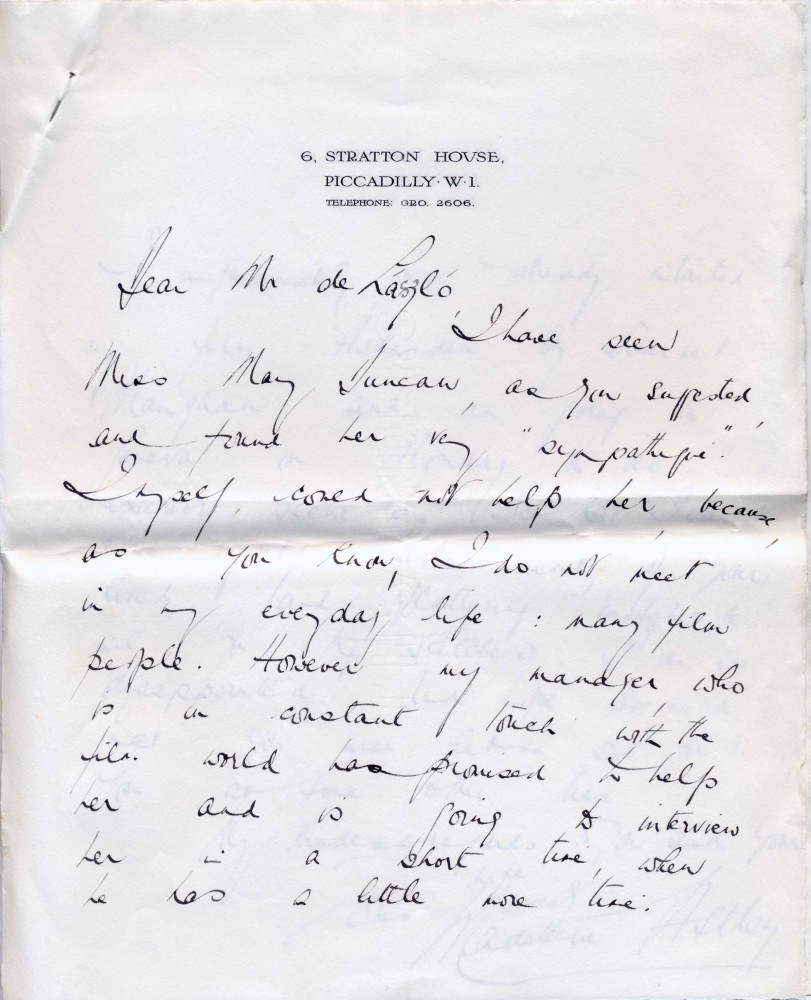 6, STRATTON HOVSE,
PICCADILLY·W·1.
TELEPHONE: GRO. 2606.
Dear Mr de László,
I have seen
Miss May Duncan, as you suggested,
and found her very "sympathique".
I myself, could not help her because,
as you know, I do not meet
in my everyday life : many film
people. However my manager, who
is in constant touch with the
film world has promised to help
her and is going to interview
her in a short time, when
he has a little more time.